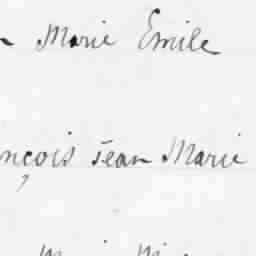 Marie Emile
nçois Jean Marie